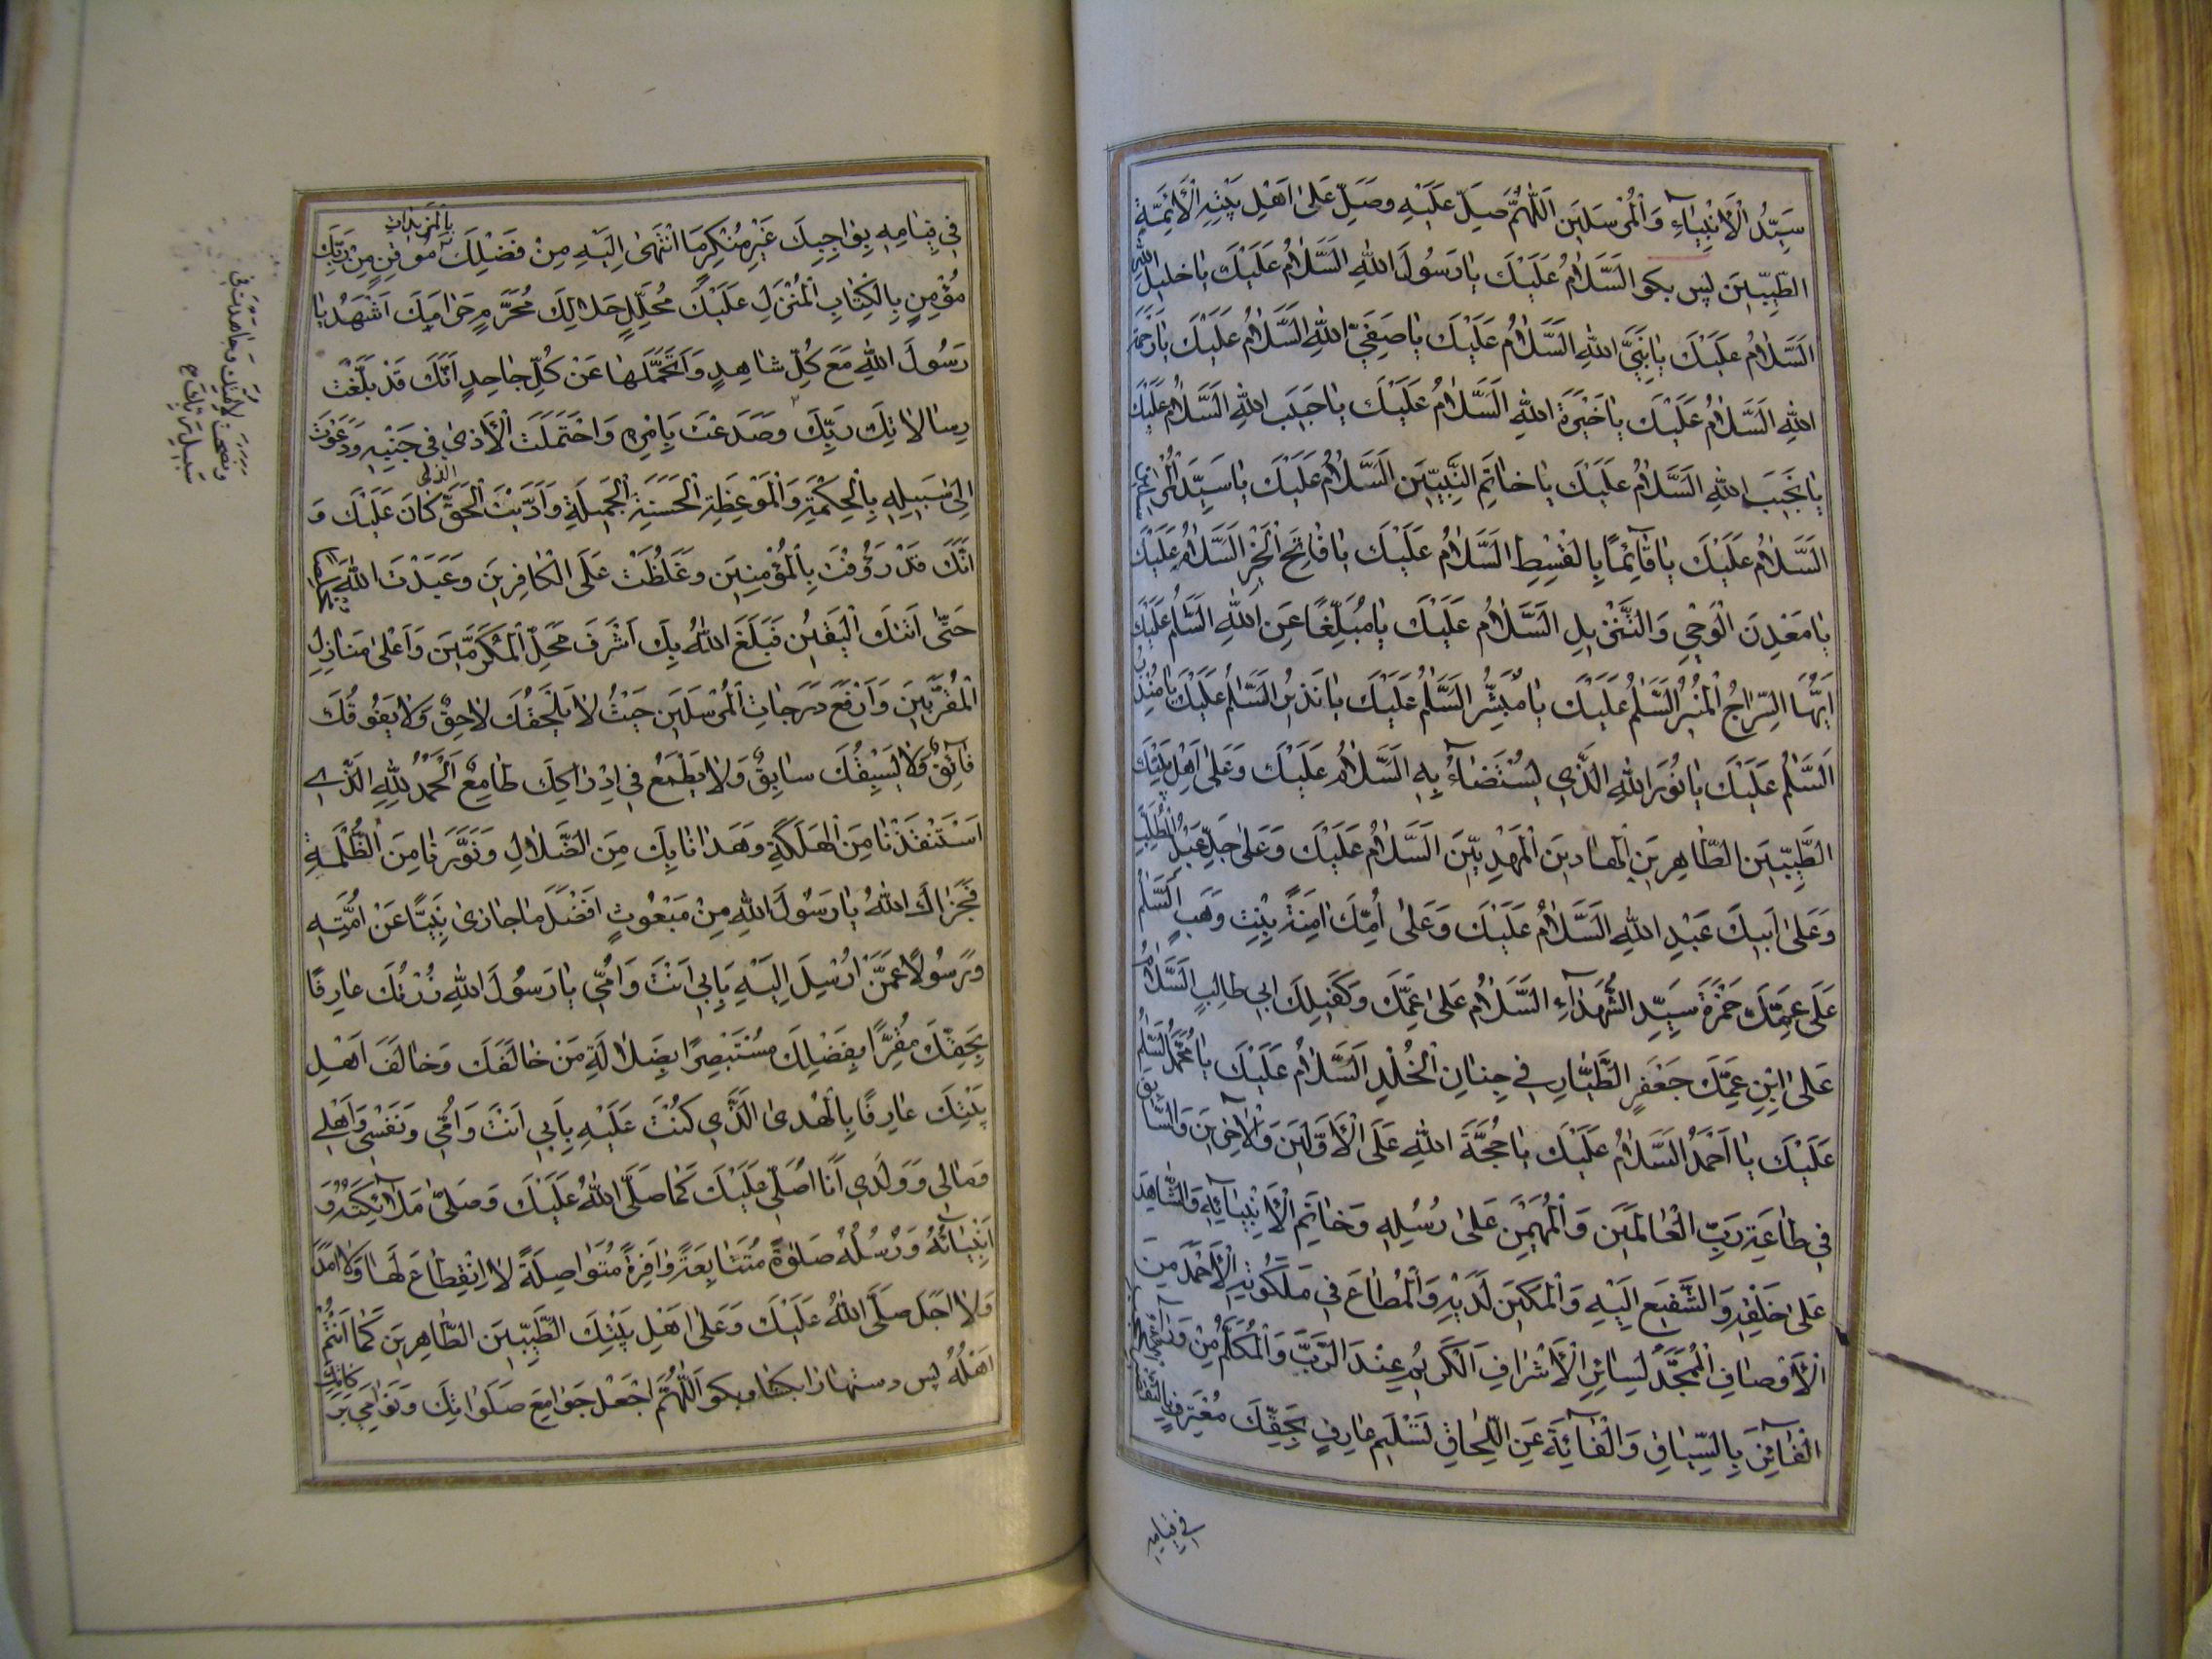 سَيِّدُ الْأَنْبِيٰآءِ وَالْمُرْسَلِينَ اَللّٰهُمَّ صَلِّ عَلَيْهِ وَصَلِّ عَلىٰ اَهْلِ بَيْتِهِ الْأَئِمَّةِ
الطَّيِّبِينَ پس بكو السَّلٰامُ عَلَيْكَ يٰا رَسُولَ اللّٰهِ السَّلٰامُ عَلَيْكَ يٰا خليل اللّٰهِ
السَّلٰامُ عَلَيْكَ يٰا نَبِيَّ اللّٰهِ السَّلٰامُ عَلَيْكَ يٰا صَفِيَّ اللّٰهِ السَّلٰامُ عَلَيْكَ يٰا رَحْمَةَ
اللّٰهِ السَّلٰامُ عَلَيْكَ يٰا خِيَرَةَ اللّٰهِ السَّلٰامُ عَلَيْكَ يٰا حَبِيبَ اللّٰهِ السَّلٰامُ عَلَيْكَ
يٰا نَجِيبَ اللّٰهِ السَّلٰامُ عَلَيْكَ يٰا خٰاتَمَ النَّبِيّينَ السَّلٰامُ عَلَيْكَ يٰا سَيِّدَ الْمُرْسَلينَ
السَّلٰامُ عَلَيْكَ يٰا قٰآئِمًا بِالْقِسْطِ السَّلٰامُ عَلَيْكَ يٰا فٰاتِحَ الْخَيْرِ السَّلٰامُ عَلَيْكَ
يٰا مَعْدِنَ الْوَحْيِ وَالتَّنْزيلِ السَّلٰامُ عَلَيْكَ يٰا مُبَلِّغًا عَنِ اللّٰهِ السَّلٰامُ عَلَيْكَ
اَيُّهَا السِّرٰاجُ الْمُنيرُ السَّلٰمُ عَلَيْكَ يٰا مُبَشِّرُ السَّلٰمُ عَلَيْكَ يٰا نَذيرُ السَّلٰمُ عَلَيْكَ يٰا مُنْذِرُ
السَّلٰمُ عَلَيْكَ يٰا نُورَ اللّٰهِ الَّذي يُسْتَضٰآءُ بِهِ السَّلٰامُ عَلَيْكَ وَعَلىٰ اَهْلِ بَيْتِكَ
الطَّيِّبينَ الطّٰاهِرينَ الْهٰادينَ الْمَهْدِيّينَ السَّلٰامُ عَلَيْكَ وَعَلىٰ جَدِّكَ عَبْدِ الْمُطَّلِبِ
وَعَلىٰ اَبيكَ عَبْدِ اللّٰهِ السَّلٰامُ عَلَيْكَ وَعَلىٰ اُمِّكَ اٰمِنَةَ بِنْتِ وَهَبٍ السَّلٰمُ
عَلىٰ عَمِّكَ حَمْزَةَ سَيِّدِ الشُّهَدٰآءِ السَّلٰامُ عَلىٰ عَمِّكَ وَكَفيلِكَ ابي طالِبٍ السَّلٰامُ
عَلىٰ ابْنِ عَمِّكَ جَعْفَرٍ الطَّيّٰارِ في جِنٰانِ الْخُلْدِ السَّلٰامُ عَلَيْكَ يٰا مُحَمَّدُ السَّلٰمُ
عَلَيْكَ يٰا اَحْمَدُ السَّلٰامُ عَلَيْكَ يٰا حُجَّةَ اللّٰهِ عَلَى الْأَوَّلينَ وَالْاٰخِرينَ وَالسّٰابِقَ
في طٰاعَةِ رَبِّ الْعٰالَمينَ وَالْمُهَيْمِنَ عَلىٰ رُسُلِهِ وَخٰاتَمَ الْأَنْبِيٰآئِهِ وَالشّٰاهِدَ
عَلىٰ خَلْقِهِ وَالشَّفيعَ اِلَيْهِ وَالْمَكينَ لَدَيْهِ وَالْمُطٰاعَ في مَلَكُوتِهِ الْأَحْمَدَ مِنَ
الْأَوْصٰافِ الْمُحَمَّدَ لِسٰائِرِ الْأَشْرٰافِ الْكَريمَ عِنْدَ الرَّبِّ وَالْمُكَلَّمَ مِنْ وَرٰآءِ الْحُجُبِ
الْفٰائِزَ بِالسِّبٰاقِ وَالْفٰائِتَ عَنِ اللِّحٰاقِ تَسْليمَ عٰارِفٍ بِحَقِّكَ مُعْتَرِفٍ بِالتَّقْصيرِ
في قيامه
في قِيٰامِهِ بِوٰاجِبِكَ غَيْرِ مُنْكِرٍ مَا انْتَهىٰ اِلَيْهِ مِنْ فَضْلِكَ مُوقِنٍ بالمزيدات مِنْ رَبِّكَ
مُؤْمِنٍ بِالْكِتٰابِ الْمُنْزَلِ عَلَيْكَ مُحَلِّلٍ حَلٰالَكَ مُحَرِّمٍ حَرٰامَكَ اَشْهَدُ يٰا
رَسُولَ اللّٰهِ مَعَ كُلِّ شٰاهِدٍ وَاَتَحَمَّلُهٰا عَنْ كُلِّ جٰاحِدٍ اَنَّكَ قَدْ بَلَّغْتَ
رِسٰالٰاتِ رَبِّكَ وَصَدَعْتَ بِاَمْرِهِ وَاحْتَمَلْتَ الْأَذىٰ في جَنْبِهِ وَدَعَوْتَ
اِلىٰ سَبيلِهِ بِالْحِكْمَةِ وَالْمَوْعِظَةِ الْحَسَنَةِ الْجَميلَةِ وَاَدَّيْتَ الْحَقَّ الذى كٰانَ عَلَيْكَ وَ
اَنَّكَ قَدْ رَؤُفْتَ بِالْمُؤْمِنينَ وَغَلُظْتَ عَلَى الْكٰافِرينَ وَعَبَدْتَ اللّٰهَ
حَتّٰى اَتٰيكَ الْيَقينُ فَبَلَغَ اللّٰهُ بِكَ اَشْرَفَ مَحَلِّ الْمُكَرَّمينَ وَاَعْلىٰ مَنٰازِلِ
الْمُقَرَّبينَ وَاَرْفَعَ دَرَجٰاتِ الْمُرْسَلينَ حَيْثُ لٰا يَلْحَقُكَ لٰاحِقٌ وَلٰا يَفُوقُكَ
فٰآئِقٌ وَلٰا يَسْبِقُكَ سٰابِقٌ وَلٰا يَطْمَعُ في اِدْرٰاكِكَ طٰامِعٌ اَلْحَمْدُ لِلّٰهِ الَّذي
اسْتَنْقَذَنٰا مِنَ الْهَلَكَةِ وَهَدٰانٰا بِكَ مِنَ الضَّلٰالِ وَنَوَّرَنٰا مِنَ الظُّلْمَةِ
فَجَزٰاكَ اللّٰهُ يٰا رَسُولَ اللّٰهِ مِنْ مَبْعُوثٍ اَفْضَلَ مٰا جٰازىٰ نَبِيًّا عَنْ اُمَّتِهِ
وَرَسُولًا عَمَّنْ اُرْسِلَ اِلَيْهِ بِاَبي اَنْتَ وَاُمّي يٰا رَسُولَ اللّٰهِ زُرْتُكَ عٰارِفًا
بِحَقِّكَ مُقِرًّا بِفَضْلِكَ مُسْتَبْصِرًا بِضَلٰالَةِ مَنْ خٰالَفَكَ وَخٰالَفَ اَهْلِ
بَيْتِكَ عٰارِفًا بِالْهُدىٰ الَّذي كُنْتَ عَلَيْهِ بِاَبي اَنْتَ وَاُمّي وَنَفْسي وَاَهْلي
وَمٰالي وَوَلَدي اَنَا اُصَلّي عَلَيْكَ كَمٰا صَلَّى اللّٰهُ عَلَيْكَ وَصَلّىٰ مَلٰآئِكَتُهُ وَ
اَنْبِيٰآئُهُ وَرُسُلُهُ صَلٰوةً مُتَتٰابِعَةً وٰافِرَةً مُتَوٰاصِلَةً لٰا انْقِطٰاعَ لَهٰا وَلٰا اَمَدَ
وَلٰا اَجَلَ صَلَّى اللّٰهُ عَلَيْكَ وَعَلىٰ اَهْلِ بَيْتِكَ الطَّيِّبينَ الطّٰاهِرينَ كَمٰا اَنْتُمْ
اَهْلُهُ پس دستهارا بكشا وبكو اَللّٰهُمَّ اجْعَلْ جَوٰامِعَ صَلَوٰاتِكَ وَنَوٰامِيَ بَرَكاتك
ونصحت لامتك وجاهدت فى
سبيل ربك